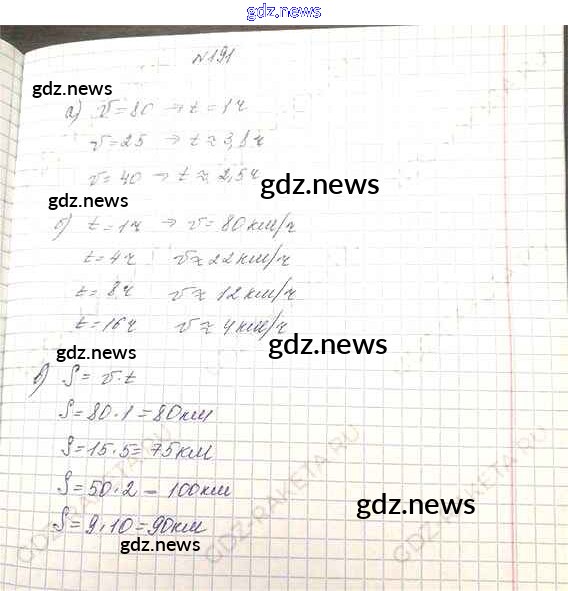 gdz.news
№191
gdz.news
а) v=80 → t=1ч
v=25 → t≈3,8ч
v=40 → t≈2,5ч
gdz.news
gdz.news
б) t=1ч → v=80км/ч
t=4ч v≈22км/ч
t=8ч v≈12км/ч
t=16ч v≈4км/ч
gdz.news
gdz.news
в) S=v·t
S=80·1=80км
S=15·5=75км
S=50·2=100км
gdz.news
S=9·10=90км
gdz.news
GDZ-RAKETA.RU
GDZ-RAKETA.RU
GDZ-RAKETA.RU